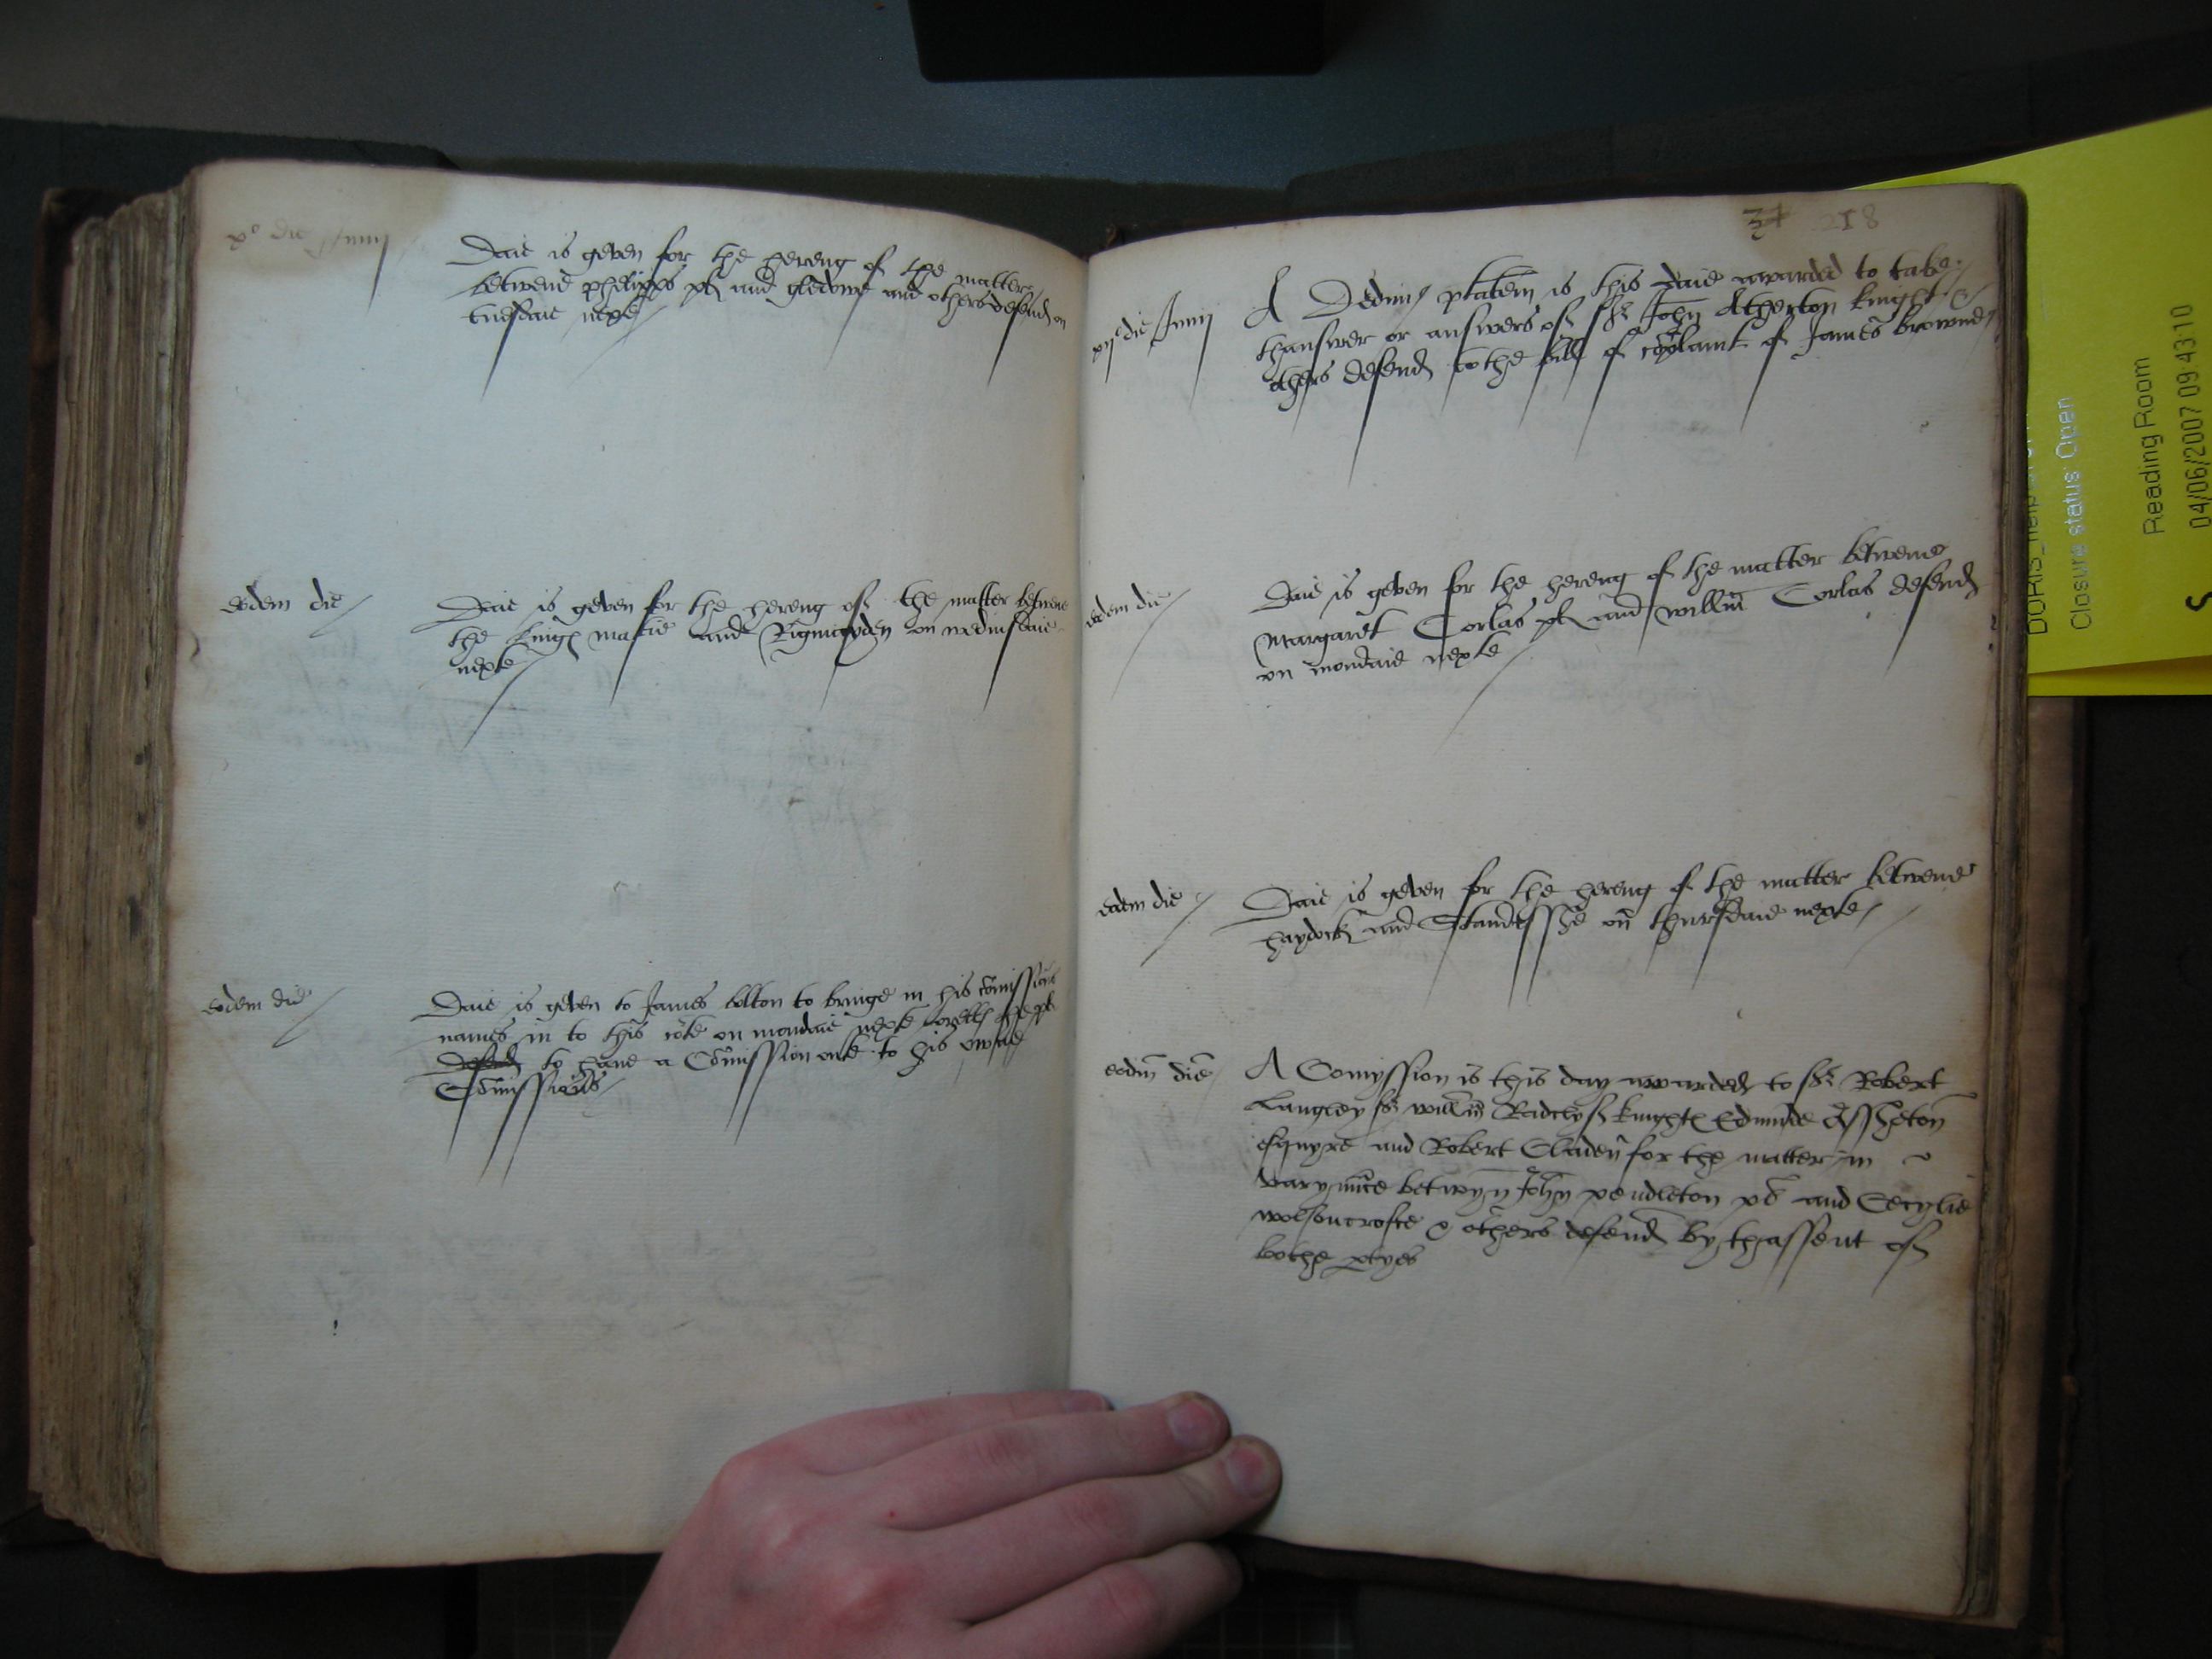 xº die Junij
Daie is geven for the hereng of the matter
betwene phelipps pl and gledowe and others defend on
tuesdaie nexte
eodem die
Daie is geven for the hereng of the matter betwene
the kings matie and Rigmayden on wednesdaie
nexte
eodem die
Daie is geven to James bolton to bringe in his comissions
names in to this cote on mondaie nexte orells the pl
defend to have a Comission onte to his owne
Comissions
37 218
xijº die Junij
A Dedimus ptatem is this daie awarded to take
thanswer or answers of Sr John Atherton knight &
others defend to the bill of coplaint of James browne
eodem die
Daie is geven for the hereng of the matter betwene
Margaret Corlas pl and willm Corlas defend
on mondaie nexte
eodem die
Daie is geven for the hereng of the matter betwene
haydock and Standisshe on thursdaie nexte
eodm die
A Comyssion is this day awarded to Sr Robert
Langley Sr willm Radclyf knights Edmude Assheton
esquyre and Robert for the matter in
varyance betwyn John pendleton pl and Cecylie
wolsoncrofte & others defend by thassent of
bothe ptyes
Closure status: Open
Reading Room
04/06/2007 09:43:10